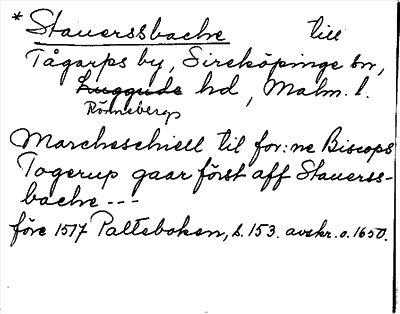 * Stauerssbacke till
Tågarps by, Sireköpinge sn,
Luggude hd, Malm. l.
Rönnebergs
Marcheschiell til for:ne Biscops
Togerup gaar först aff Stauerss-
backe ---
före 1517 Palteboken, s. 153. avskr. o. 1650.